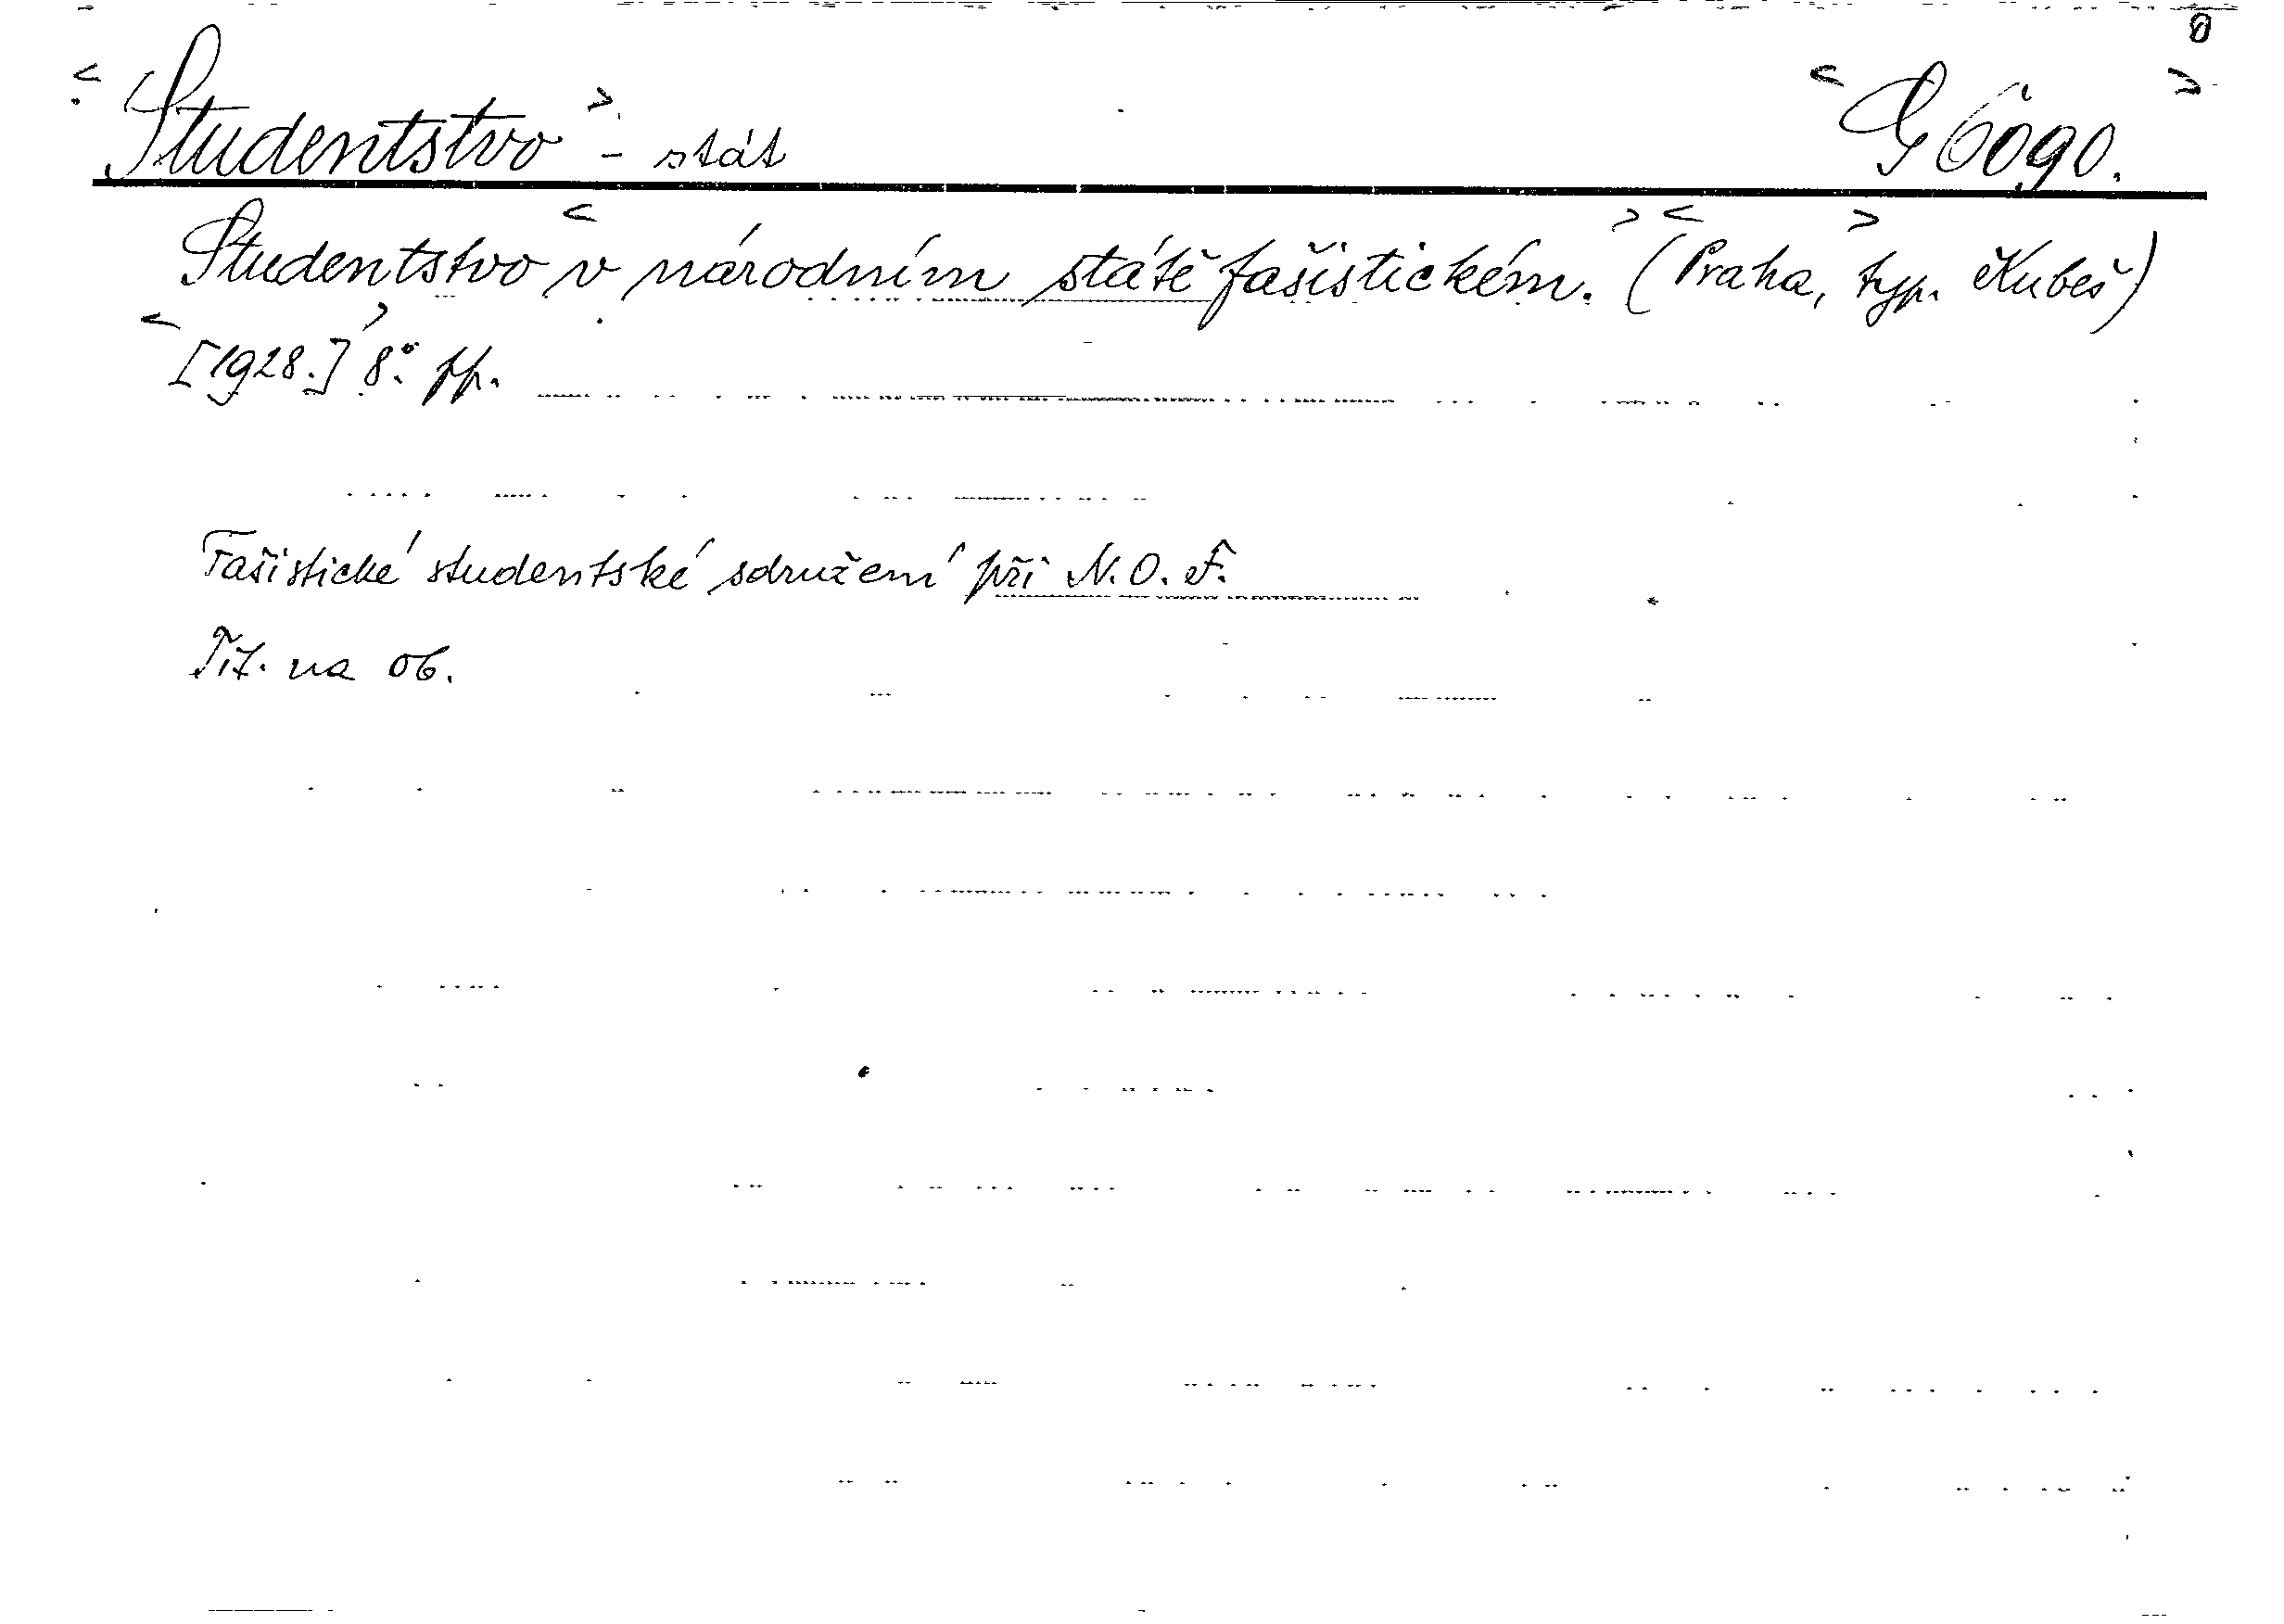 8
<Studentstvo> - stát <G 6090.>
Studentstvo <v národním státě fašistickém.> <(Praha,> typ. Kubeš)
<[1928.]> 8°. pp.
Fašistické studentské sdružení při N. O. F.
Tit. na ob.